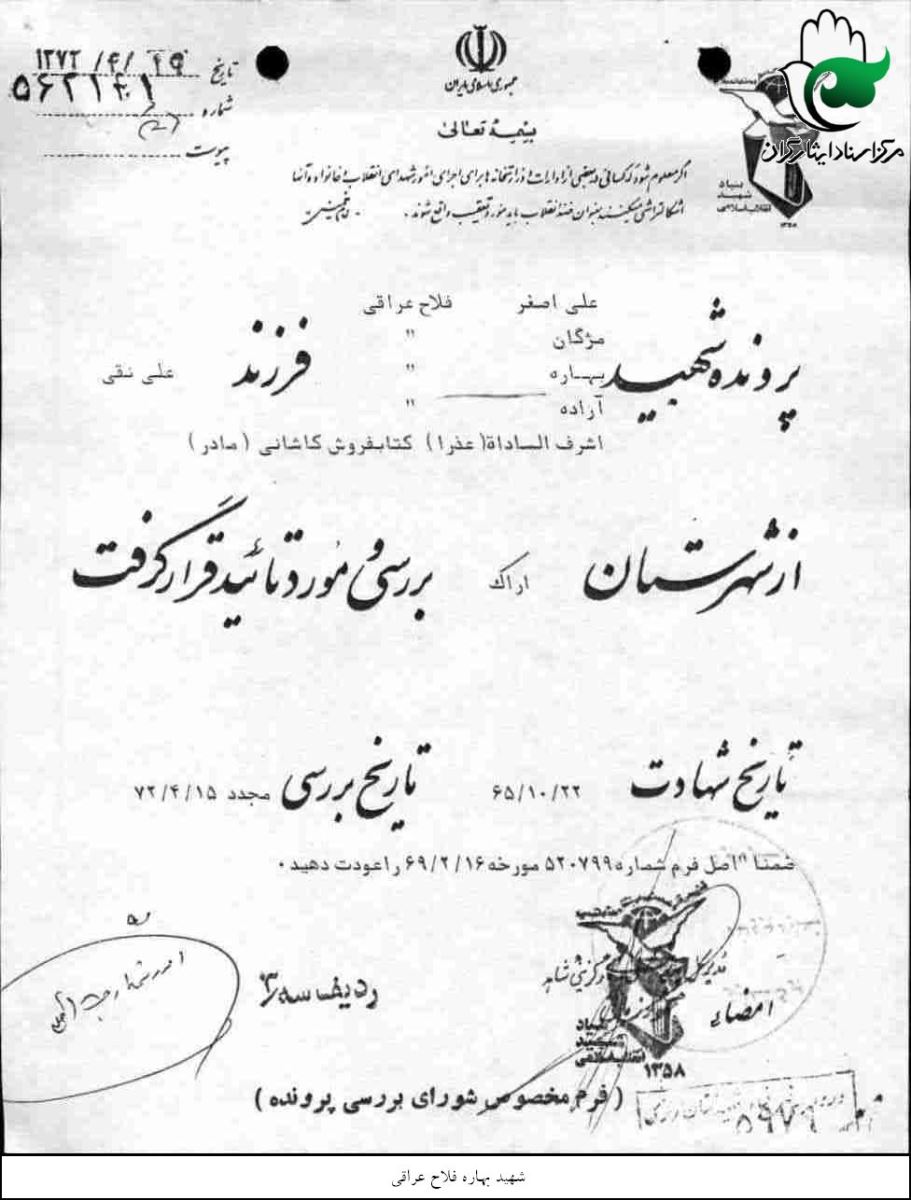 مرکز اسناد ایثارگران
جمهوری اسلامی ایران
بسمه تعالی
تاریخ ۱۳۷۲/۴/۱۹
شماره ۵۶۲۱۴۱
پیوست
بنیاد شهید انقلاب اسلامی
۱۳۵۸
اگر معلوم شود که کسانی در بعضی از ادارات و وزارتخانه ها برای اجرای امور شهدای انقلاب و خانواده آنها
اشکالتراشی میکنند بعنوان ضد انقلاب باید مورد تعقیب واقع شوند . امام خمینی
پرونده شهید
علی اصغر فلاح عراقی
مژگان "
بهاره "
آزاده "
اشرف الساداة (عذرا) کتابفروش کاشانی (مادر)
فرزند علی نقی
از شهرستان اراک بررسی و مورد تائید قرار گرفت
تاریخ شهادت ۶۵/۱۰/۲۲ تاریخ بررسی مجدد ۷۲/۴/۱۵
ضمنا" اصل فرم شماره ۵۲۰۷۹۹ مورخه ۶۹/۲/۱۶ را عودت دهید .
ردیف سه ۳
امضاء
بنیاد شهید انقلاب اسلامی
۱۳۵۸
(فرم مخصوص شورای بررسی پرونده)
شهید بهاره فلاح عراقی